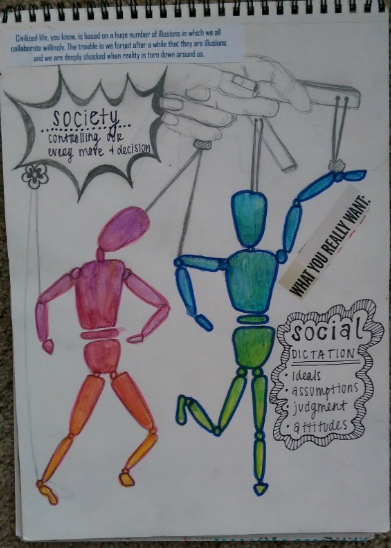 Civilized life, you know, is based on a huge number of illusions in which we all
collaborate willingly. The trouble is we forget after a while that they are illusions
and we are deeply shocked when reality is torn down around us.
society
controlling our
every move + decision
WHAT YOU REALLY WANT:
social
DICTATION
• ideals
• assumptions
judgment
• attitudes